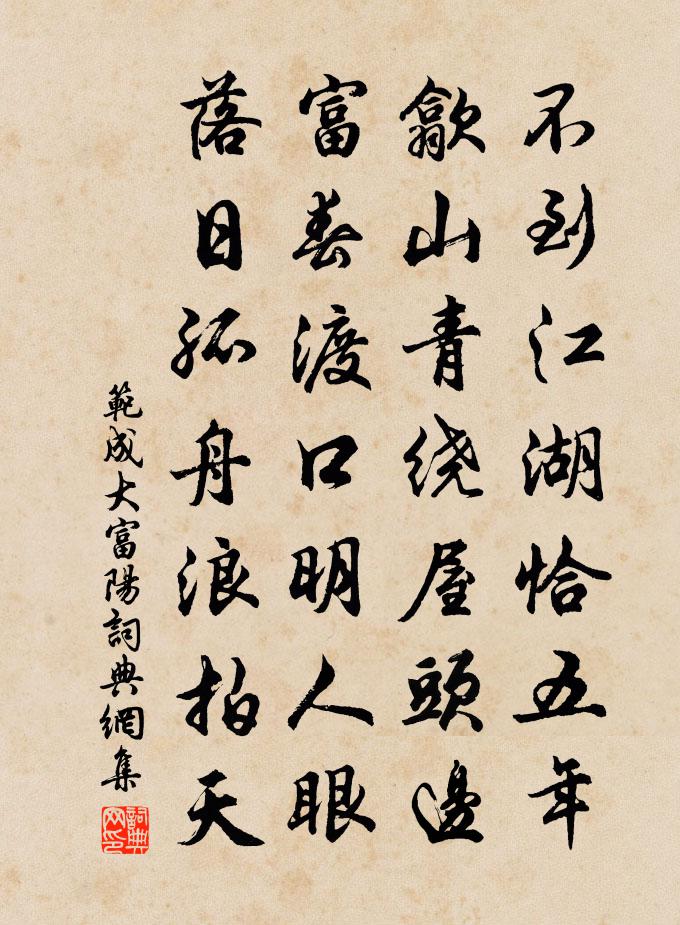 不到江湖恰五年
歙山青绕屋頭邊
富春渡口明人眼
落日孤舟浪拍天
範成大富陽詞典網集
詞典網印